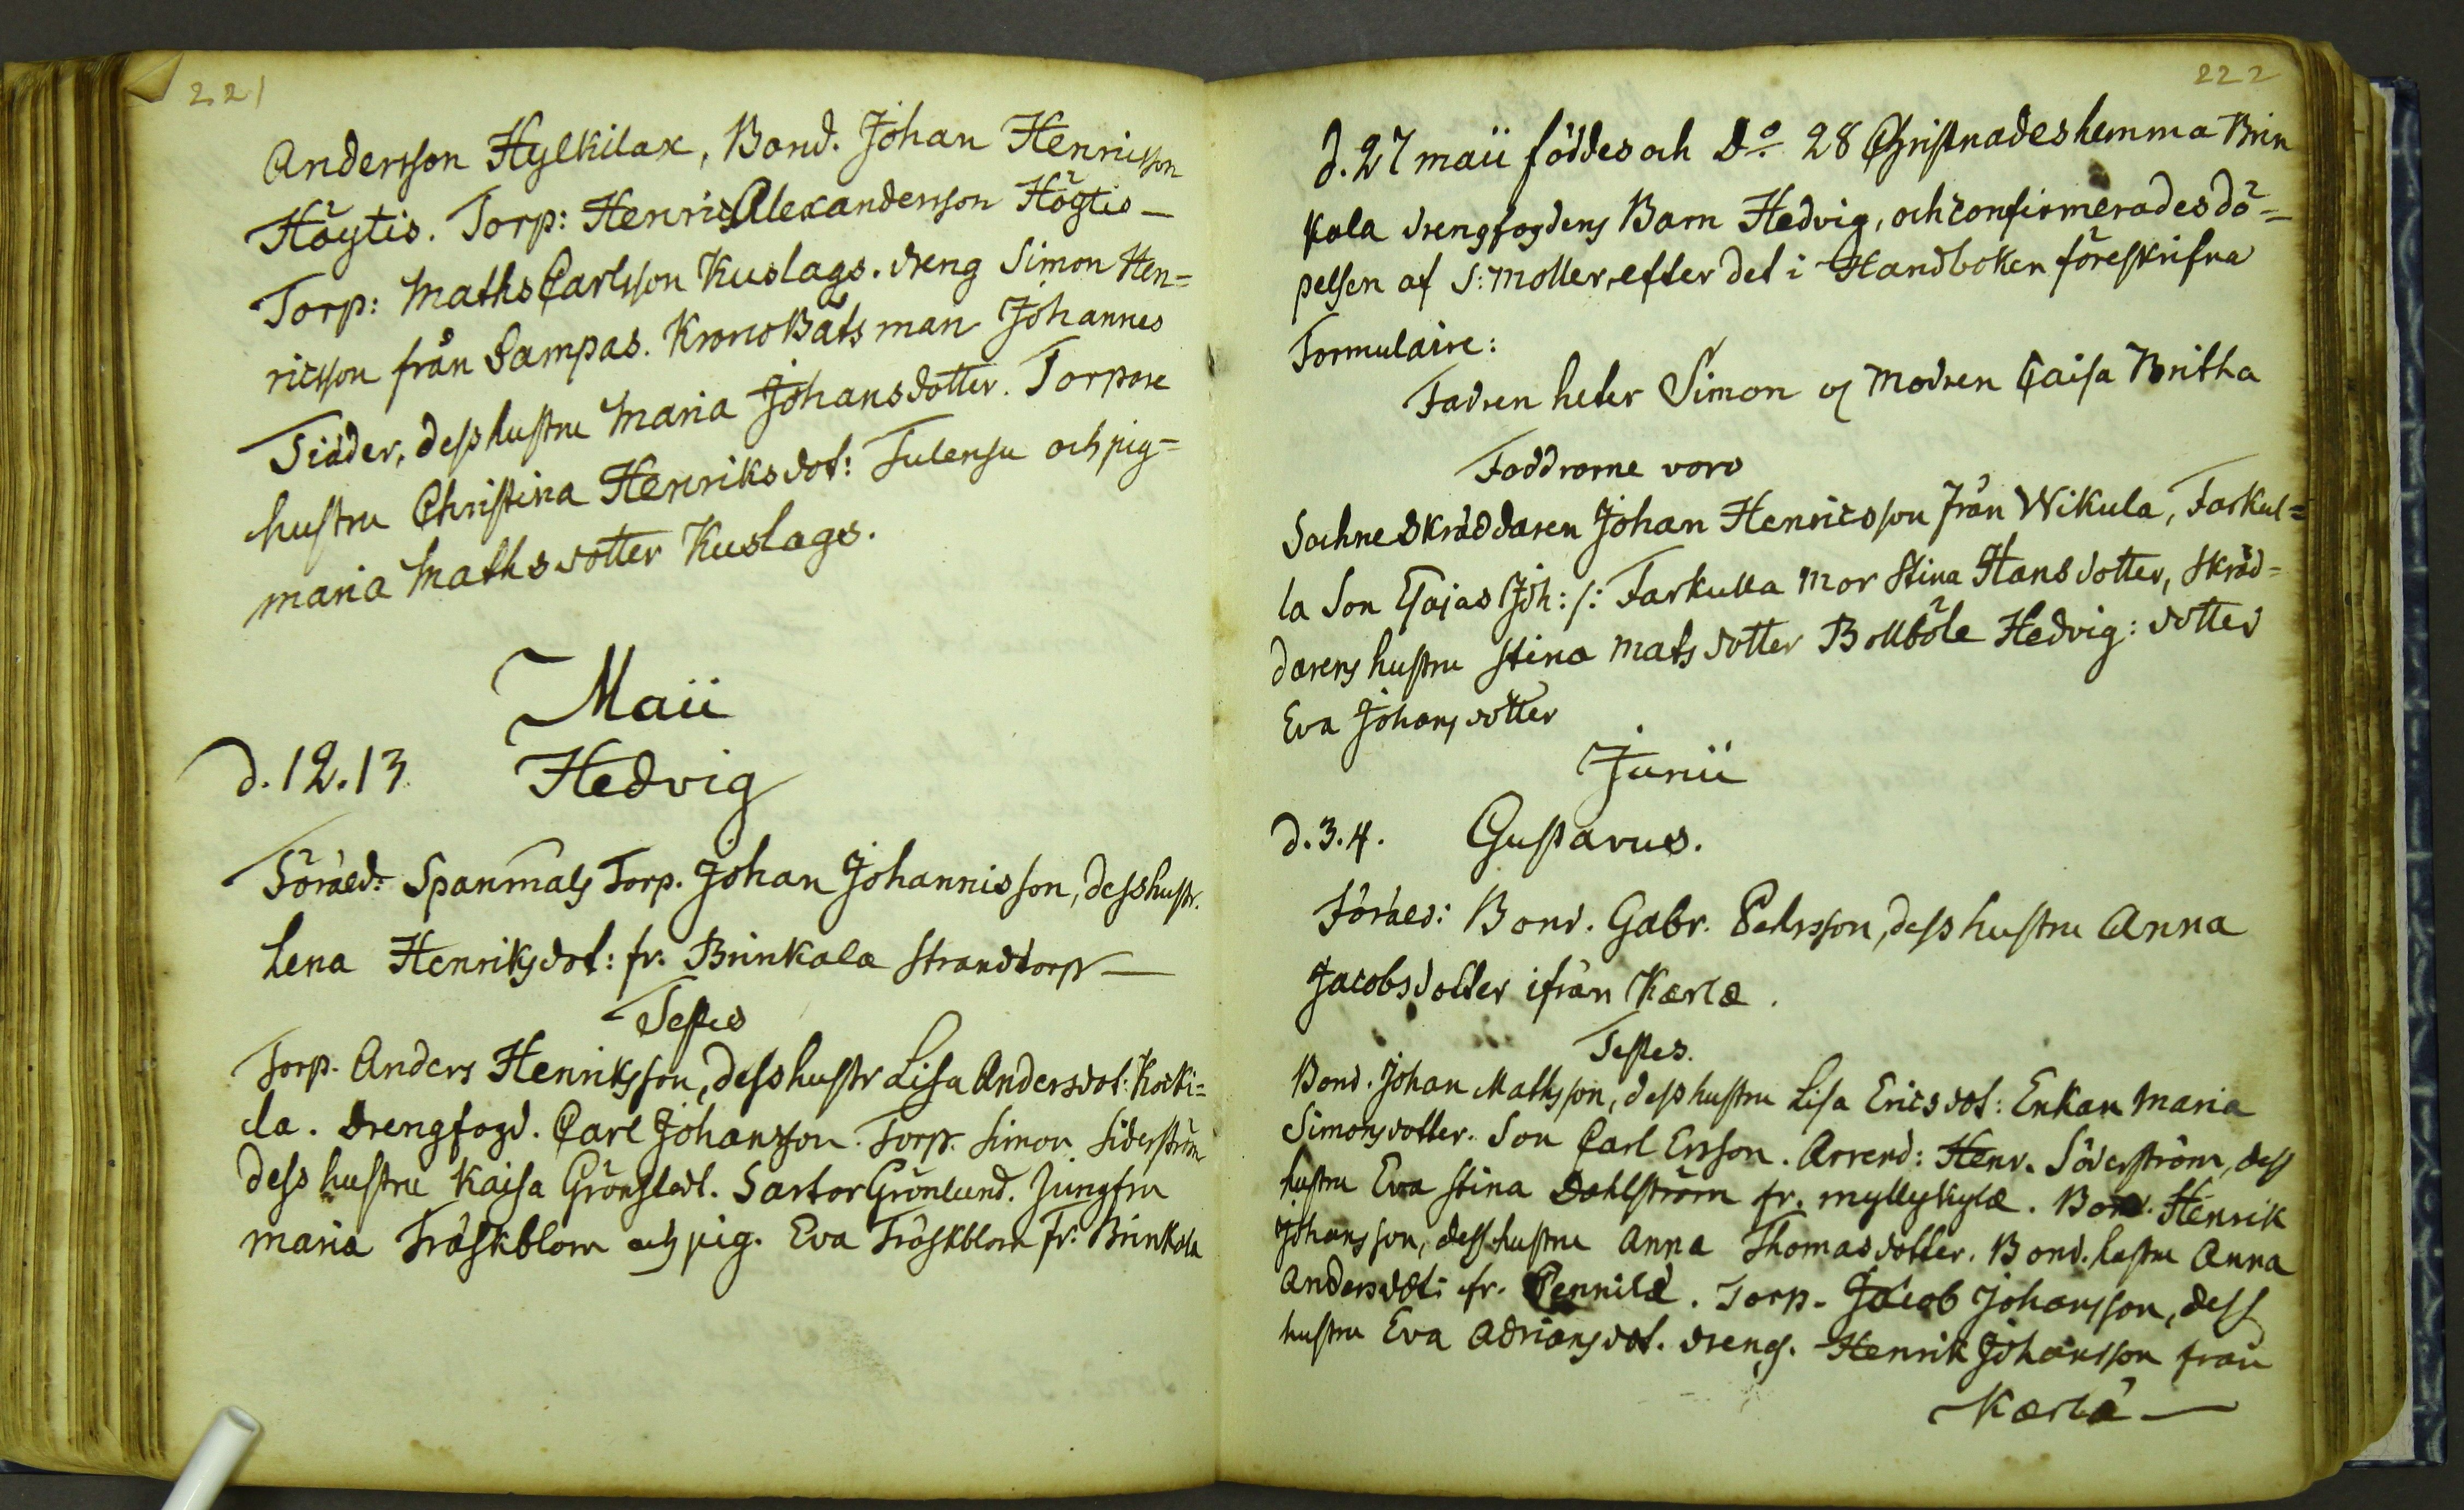 221
Andersson Hylkilax, Bond. Johan Henricsson
Höytis. Torp: Henric Alexandersson Högtis —
Torp: Maths Carlsson Kuslags. dreng Simon Hen=
ricsson från Sampas. Krono Båtsman Johannes
Tiäder, dess hustru Maria Johansdotter. Torpare
hustru Christina Henriksdot: Tulensu och pig=
maria Mathsdotter Kuslags.
Maii
d. 12. 13 Hedvig
Föräld: Spanmåls Torp. Johan Johannisson, dess hustr.
Lena Henriksdot: fr: Brinkala strandtorp —
Testes
Torp. Anders Henriksson, dess hustr Lisa Andersdot: Kocki=
la. drengfogd. Carl Johansson. Torp. Simon Siderström
dess hustru Kaisa Grönstedt. Sartor Grönlund. Jungfru
maria Träskblom och pig. Eva Träskblom fr: Brinkala
222
d. 27 maii föddes och Do. 28 Christnades hemma Brin
kala drengfogdens Barn Hedvig, och confirmerades dö=
pelsen af S: Moller, efter det i Handboken föreskrifna
Formulaire:
Fadren heter Simon och Modren Caisa Britha
Faddrarne voro
Sochne Skräddaren Johan Henricsson från Wikula, Tarkul=
la Son Joh: /: Tarkulla Mor Stina Hansdotter, Skräd=
darens hustru Stina Matsdotter Bollböle Hedvig: dotter
Eva Johansdotter
Junii
d. 3. 4. Gustavus.
Föräld: Bond. Gabr. Pehrsson, dess hustru Anna
Jacobsdotter ifrån Kærlæ.
Testes.
Bond. Johan Mathsson, dess hustru Lisa Ericsdot: Enkan Maria
Simonsdotter. Son Carl Ersson. Arrend: Henr. Söderström, dess
hustru Eva Stina Dahlström fr. myllykylæ. Bond. Henrik
Johansson, dess hustru Anna Thomasdotter. Bond. hustru Anna
Andersdot: fr. Pennilä. Torp. Jacob Johansson, dess
hustru Eva Adriansdot. dreng. Henrik Johansson från
Kærlä —